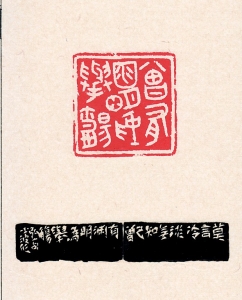 曾有
淵明為
舉觴
莫言冷淡無知己曾有淵明為舉觴